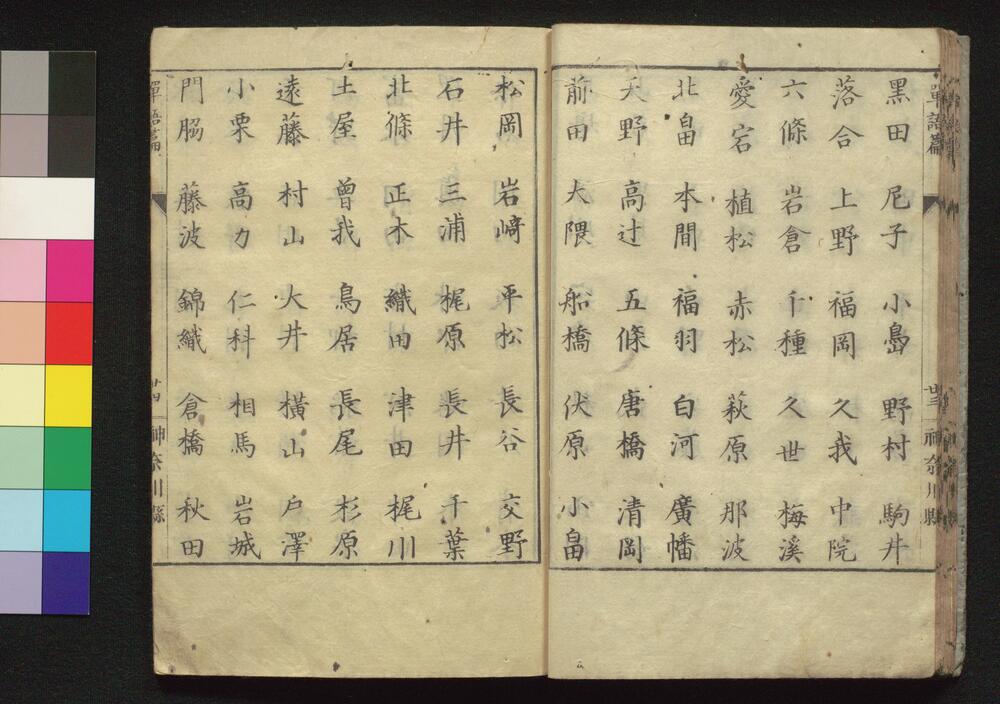 單語篇
廿三 神奈川縣
黒田 尼子 小島 野村 駒井
落合 上野 福岡 久我 中院
六條 岩倉 千種 久世 梅溪
愛宕 植松 赤松 萩原 那波
北畠 本間 福羽 白河 廣幡
天野 高辻 五條 唐橋 清岡
前田 大隈 船橋 伏原 小畠
松岡 岩﨑 平松 長谷 交野
石井 三浦 梶原 長井 千葉
北條 正木 織田 津田 梶川
土屋 曾我 鳥居 長尾 杉原
遠藤 村山 大井 橫山 戶澤
小栗 高力 仁科 相馬 岩城
門脇 藤波 錦織 倉橋 秋田
單語篇
廿四 神奈川縣